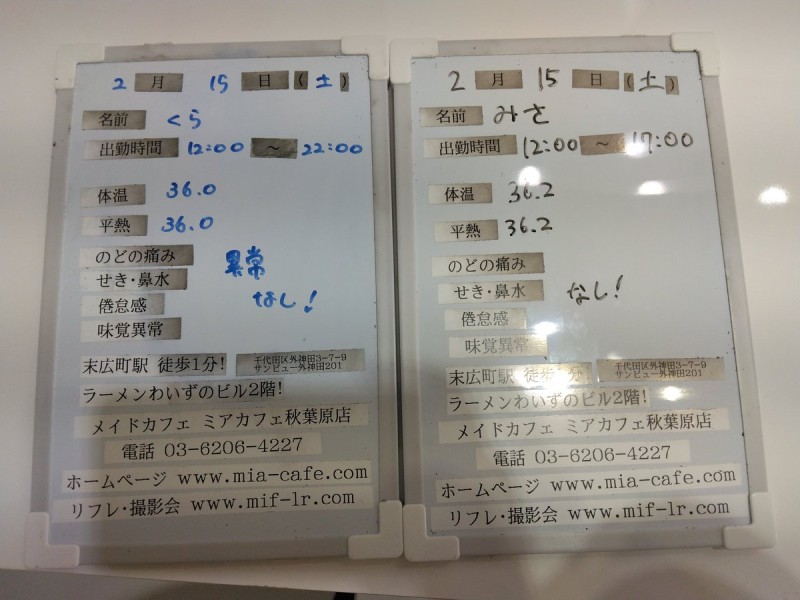 2 月 15 日 (土)
名前 くら
出勤時間 12:00 ~ 22:00
体温 36.0
平熱 36.0
のどの痛み
せき・鼻水
倦怠感
味覚異常
異常
なし!
末広町駅 徒歩1分!
千代田区外神田3-7-9
サンビュー外神田201
ラーメンわいずのビル2階!
メイドカフェ ミアカフェ秋葉原店
電話 03-6206-4227
ホームページ www.mia-cafe.com
リフレ・撮影会 www.mif-lr.com
2 月 15 日 (土)
名前 みさ
出勤時間 12:00 ~ 17:00
体温 36.2
平熱 36.2
のどの痛み
せき・鼻水
倦怠感
味覚異常
なし!
末広町駅 徒歩1分!
千代田区外神田3-7-9
サンビュー外神田201
ラーメンわいずのビル2階!
メイドカフェ ミアカフェ秋葉原店
電話 03-6206-4227
ホームページ www.mia-cafe.com
リフレ・撮影会 www.mif-lr.com